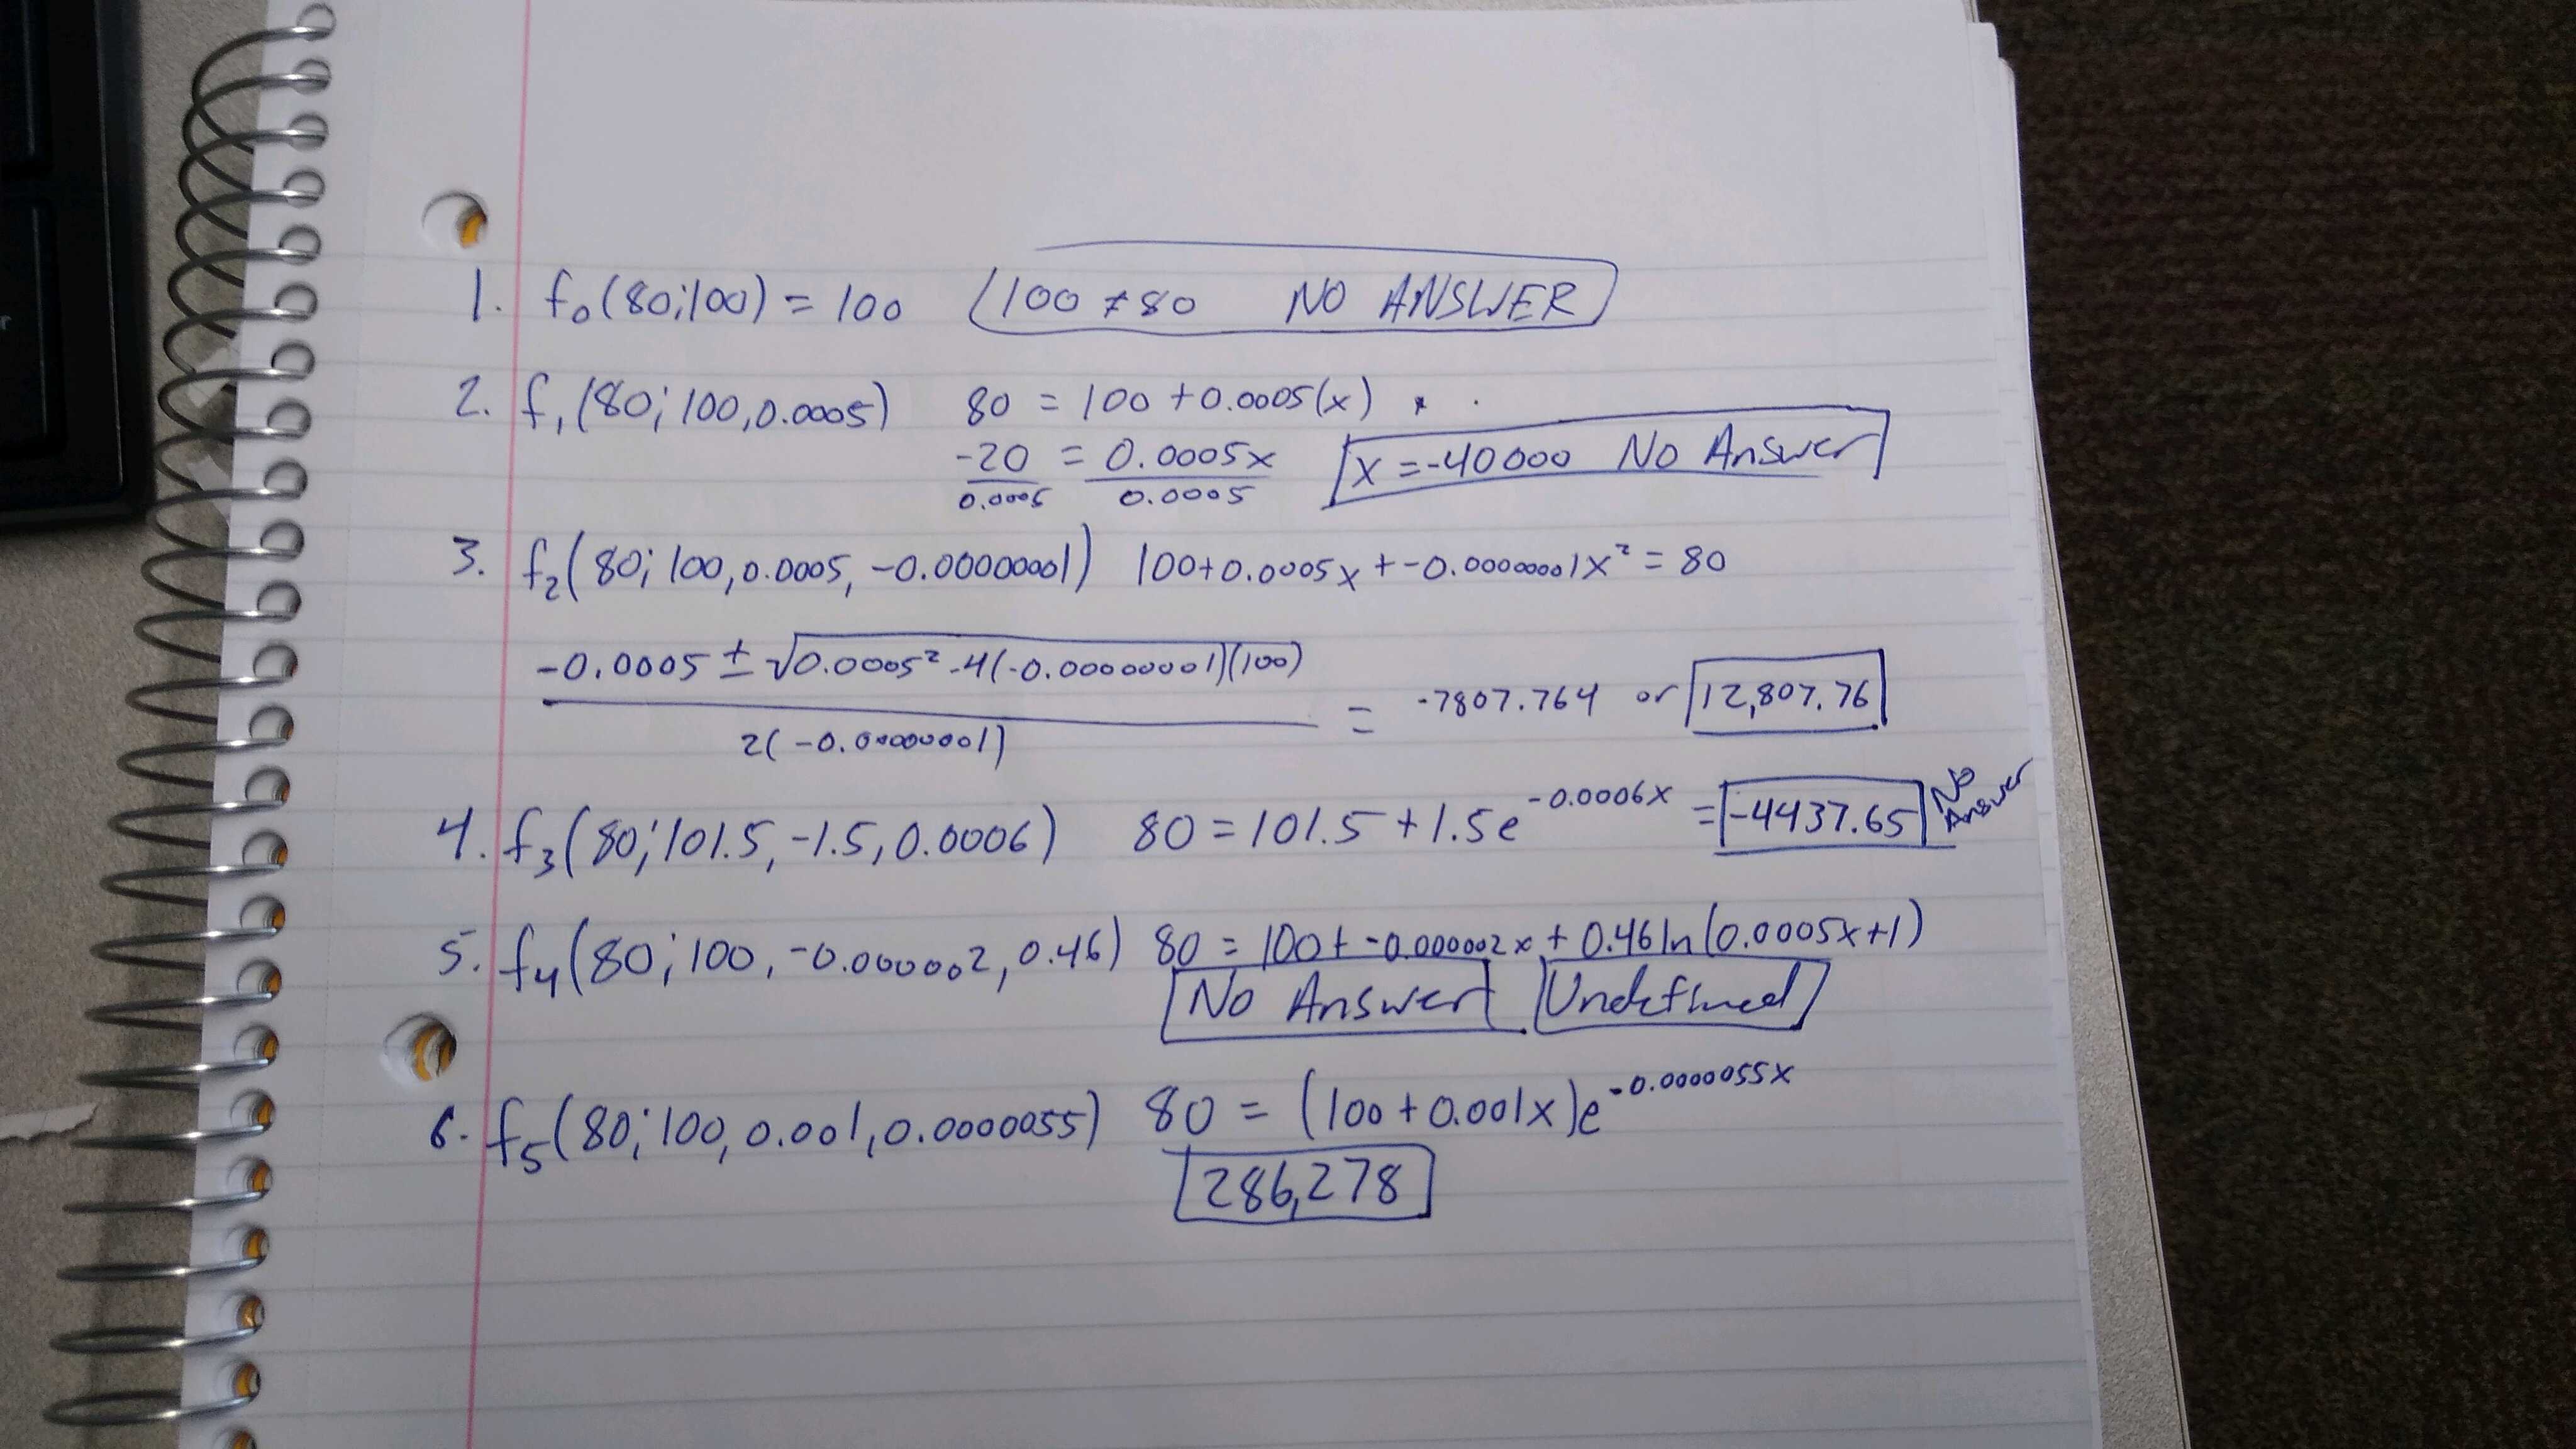 1. f₀(80;100) = 100 100 ≠ 80 NO ANSWER
2. f₁(80; 100, 0.0005) 80 = 100 + 0.0005(x)
-20 = 0.0005x x = -40000 No Answer
0.0005 0.0005
3. f₂(80; 100, 0.0005, -0.00000001) 100+0.0005x + -0.00000001x² = 80
-0.0005 ± √0.0005² -4(-0.00000001)(100)
= -7807.764 or 12,807.76
2(-0.00000001)
4. f₃(80; 101.5, -1.5, 0.0006) 80 = 101.5 + 1.5e^-0.0006x = -4437.65 No Answer
5. f₄(80; 100, -0.000002, 0.46) 80 = 100 + -0.000002x + 0.46 ln(0.0005x+1)
No Answer Undefined
6. f₅(80; 100, 0.001, 0.0000055) 80 = (100 + 0.001x)e^-0.0000055x
286,278